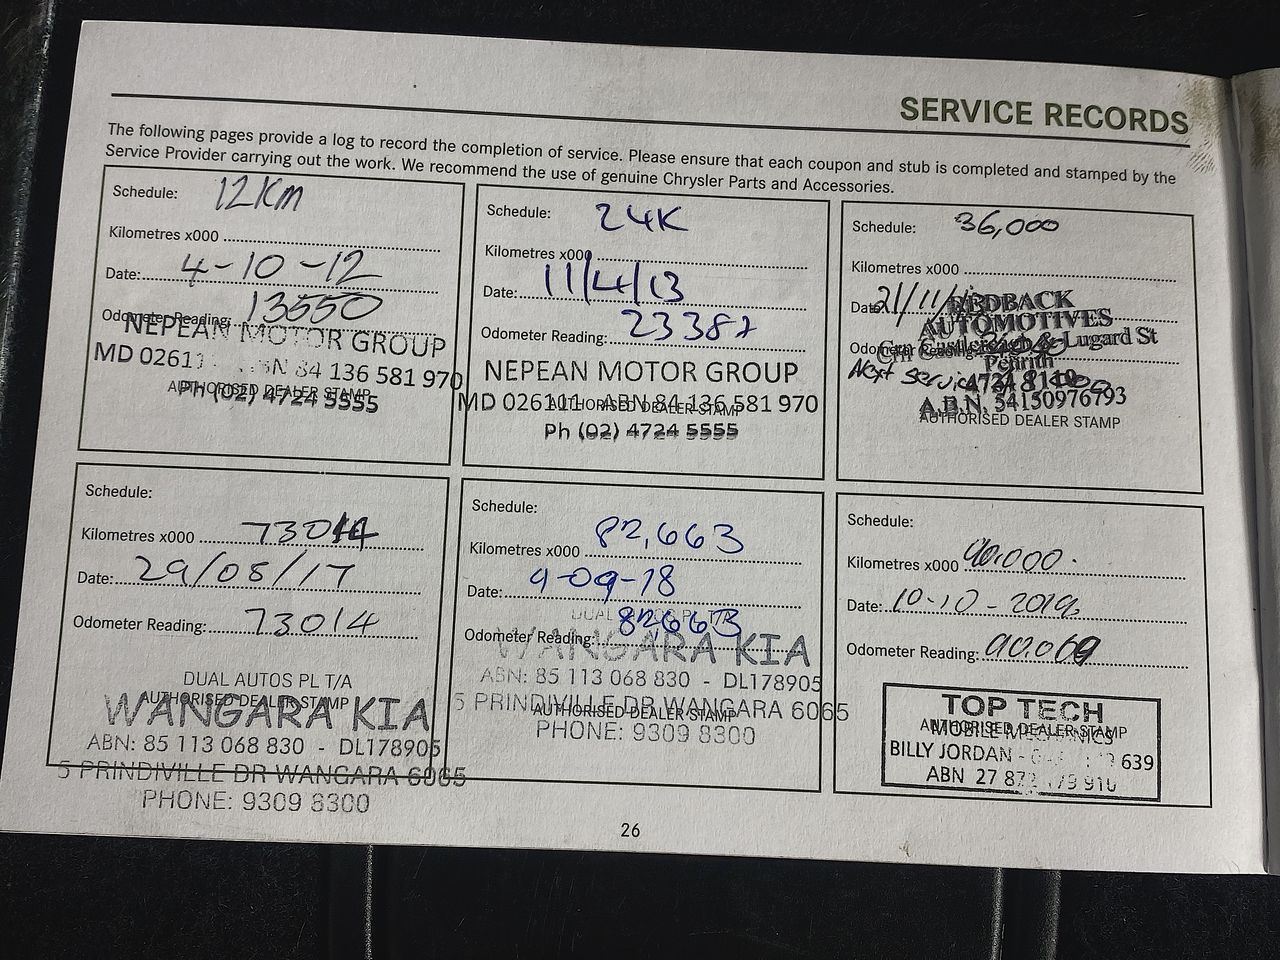 SERVICE RECORDS
The following pages provide a log to record the completion of service. Please ensure that each coupon and stub is completed and stamped by the
Service Provider carrying out the work. We recommend the use of genuine Chrysler Parts and Accessories.
Schedule: 12Km
Kilometres x000
Date: 4-10-12
Odometer Reading: 13550
NEPEAN MOTOR GROUP
MD 02611 84 136 581 970
AUTHORISED DEALER STAMP
Ph (02) 4724 5555
Schedule: 24K
Kilometres x000
Date: 11/4/13
Odometer Reading: 23387
NEPEAN MOTOR GROUP
MD 026111 ABN 84 136 581 970
AUTHORISED DEALER STAMP
Ph (02) 4724 5555
Schedule: 36,000
Kilometres x000
Date 21/11/
REDBACK
AUTOMOTIVES
Odometer Reading
Crn Castlereagh & Lugard St
Penrith
Next Service
4731 8140
A.B.N. 54150976793
AUTHORISED DEALER STAMP
Schedule:
Kilometres x000 73014
Date: 29/08/17
Odometer Reading: 73014
DUAL AUTOS PL T/A
AUTHORISED DEALER STAMP
WANGARA KIA
ABN: 85 113 068 830 - DL178905
5 PRINDIVILLE DR WANGARA 6065
PHONE: 9309 8300
Schedule:
Kilometres x000 82,663
Date: 4-09-18
DUAL AUTOS PL T/A
Odometer Reading: 82663
WANGARA KIA
ABN: 85 113 068 830 - DL178905
5 PRINDIVILLE DR WANGARA 6065
AUTHORISED DEALER STAMP
PHONE: 9309 8300
Schedule:
Kilometres x000 90,000.
Date: 10-10-2019
Odometer Reading: 90.069
TOP TECH
AUTHORISED DEALER STAMP
MOBILE MECHANICS
BILLY JORDAN - 639
ABN 27 87 179 910
26